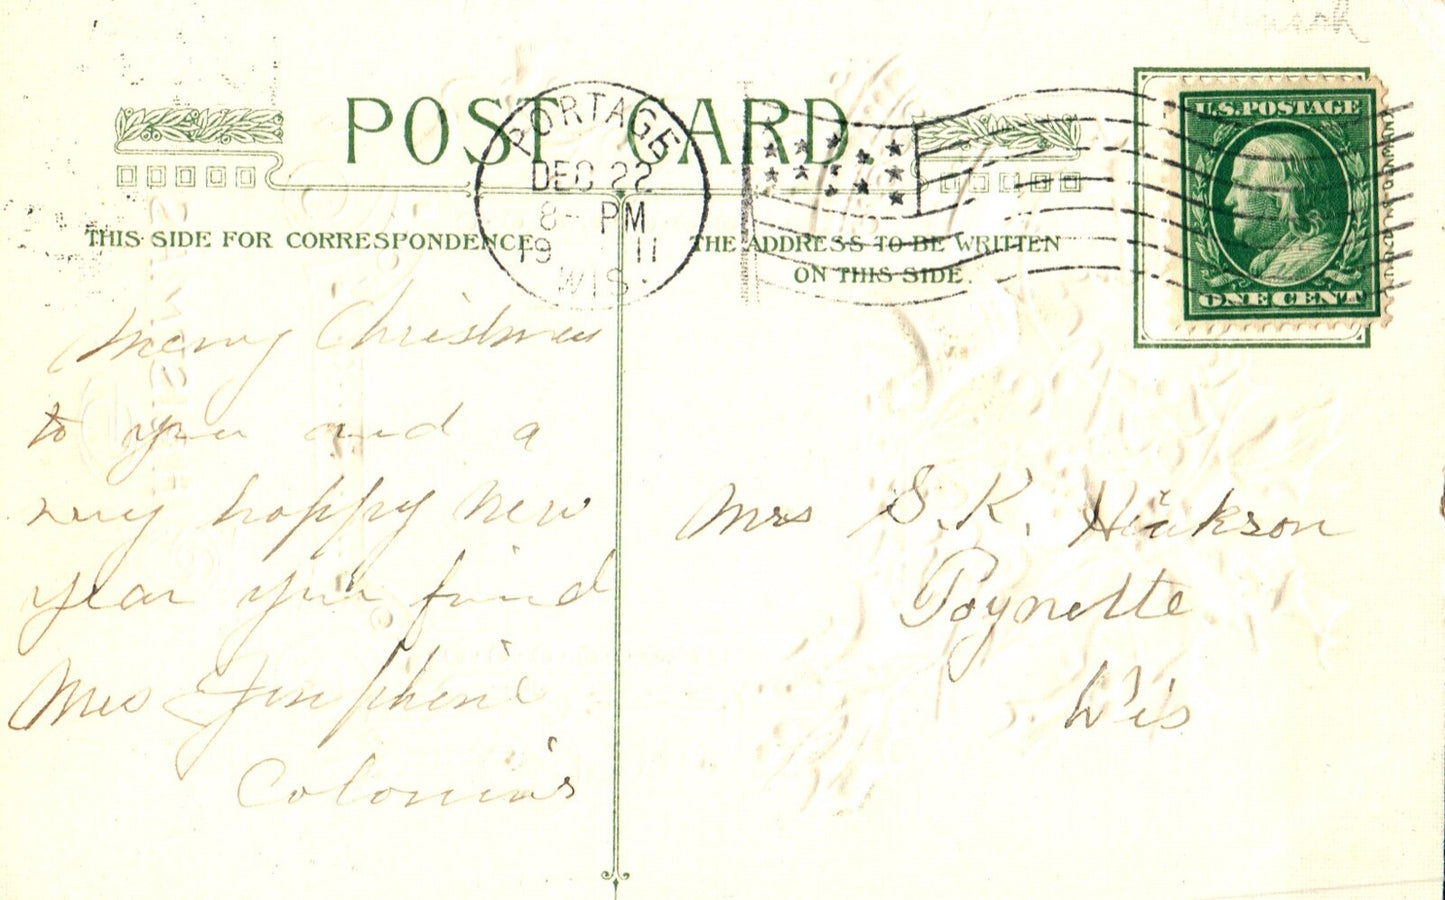 POST CARD
PORTAGE
DEC 22
8- PM
19 11
WIS.
U.S. POSTAGE
ONE CENT
THIS SIDE FOR CORRESPONDENCE
THE ADDRESS TO BE WRITTEN
ON THIS SIDE.
Merry Christmas
to you and a
very happy New
year your friend
Mrs Josephine
Mrs S. K. Hinkson
Poynette
Wis